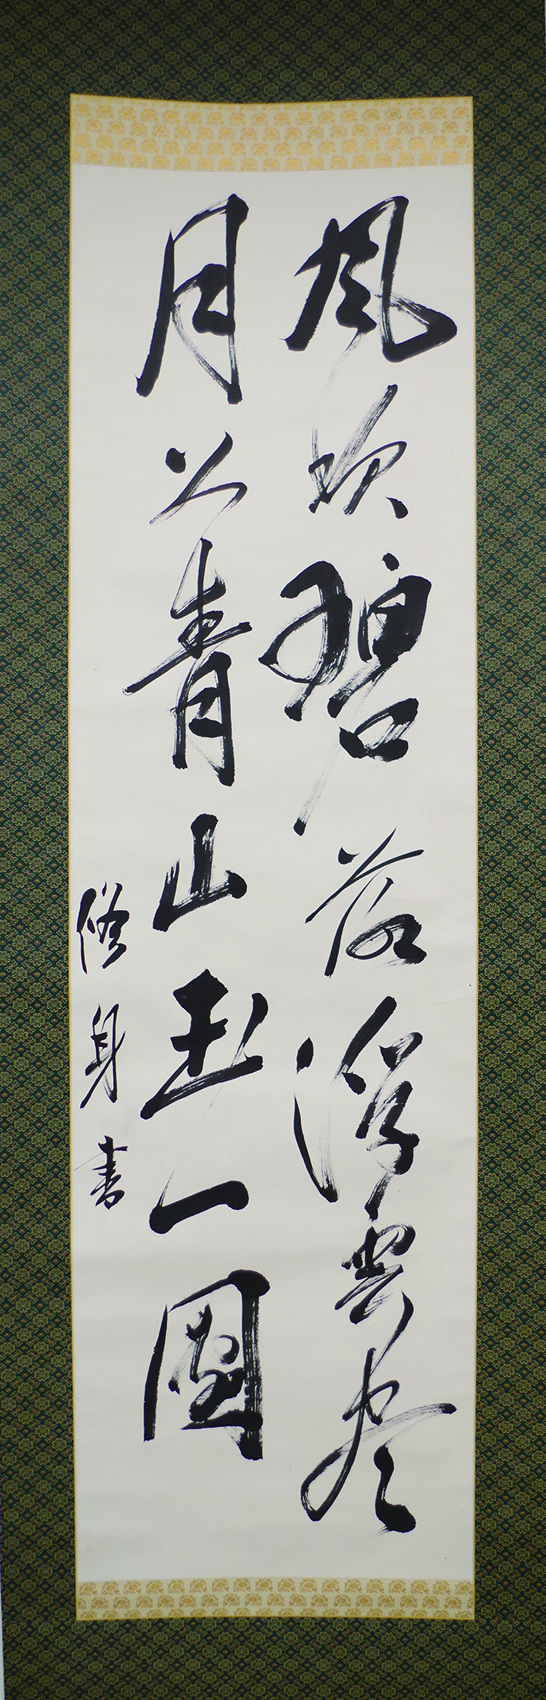 風吹碧落浮雲尽
月上青山玉一団
修身書